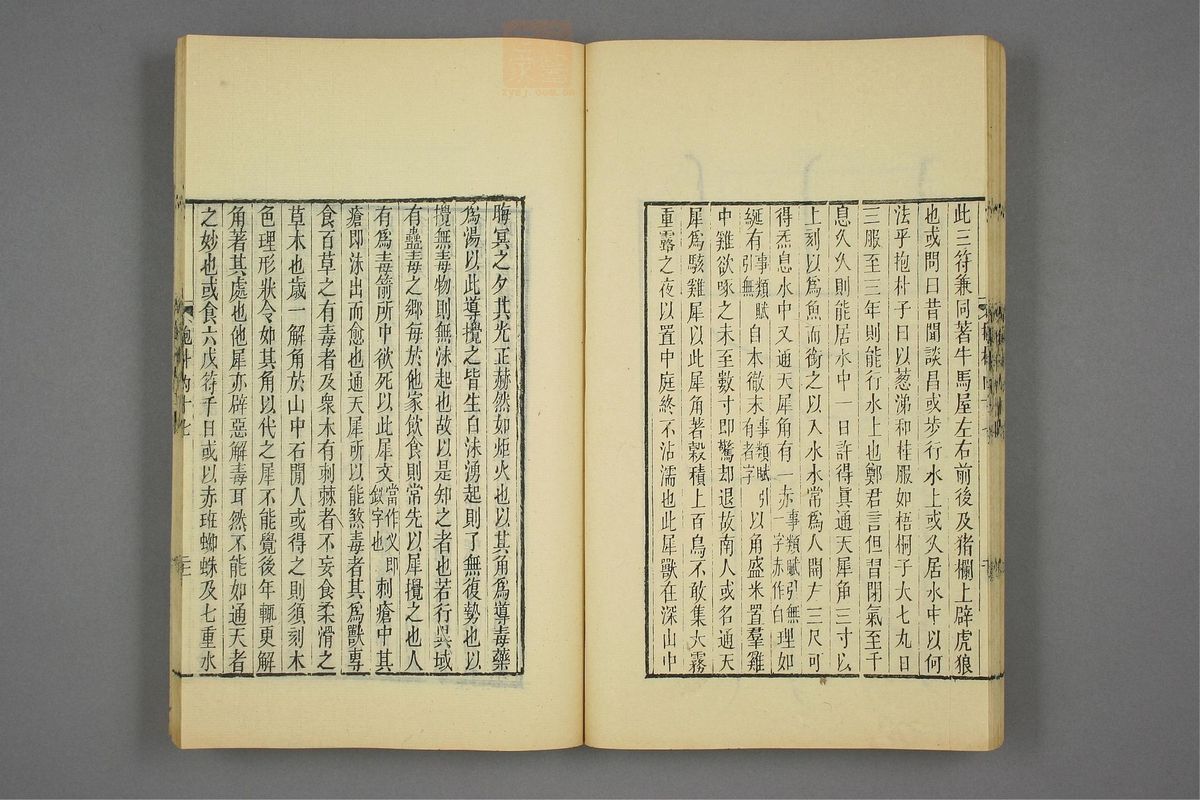 此三符兼同著牛馬屋左右前後及猪欄上辟虎狼
也或問曰昔聞談昌或步行水上或久居水中以何
法乎抱朴子曰以葱涕和桂服如梧桐子大七丸日
三服至三年則能行水上也鄭君言但習閉氣至千
息久久則能居水中一日許得眞通天犀角三寸以
上刻以爲魚而銜之以入水水常爲人開方三尺可
得炁息水中又通天犀角有一赤事類賦引無一字赤作白理如
綖有事類賦引無自本徹末事類賦引有者字以角盛米置羣雞
中雞欲啄之未至數寸卽驚却退故南人或名通天
犀爲駭雞犀以此犀角著穀積上百鳥不敢集大霧
重露之夜以置中庭終不沾濡也此犀獸在深山中
晦冥之夕其光正赫然如炬火也以其角爲導毒藥
爲湯以此導攪之皆生白沫湧起則了無復勢也以
攪無毒物則無沫起也故以是知之者也若行異域
有蠱毒之鄉每於他家飲食則常先以犀攪之也人
有爲毒箭所中欲死以此犀文當作叉卽釵字也刺瘡中其
瘡卽沫出而愈也通天犀所以能煞毒者其爲獸專
食百草之有毒者及衆木有刺棘者不妄食柔滑之
草木也歲一解角於山中石間人或得之則須刻木
色理形狀令如其角以代之犀不能覺後年輒更解
角著其處也他犀亦辟惡解毒耳然不能如通天者
之妙也或食六戊符千日或以赤班蜘蛛及七重水
抱朴內十七